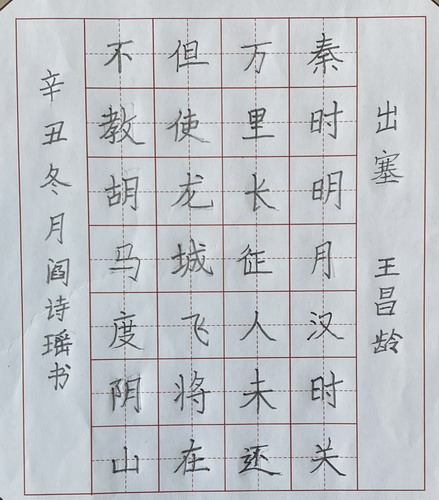 出塞 王昌龄
秦时明月汉时关
万里长征人未还
但使龙城飞将在
不教胡马度阴山
辛丑冬月阎诗瑶书